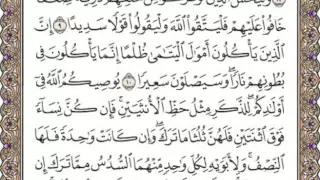 خَافُوا۟ عَلَيْهِمْ فَلْيَتَّقُوا۟ ٱللَّهَ وَلْيَقُولُوا۟ قَوْلًا سَدِيدًا ۝٩ إِنَّ
ٱلَّذِينَ يَأْكُلُونَ أَمْوَٰلَ ٱلْيَتَٰمَىٰ ظُلْمًا إِنَّمَا يَأْكُلُونَ فِى
بُطُونِهِمْ نَارًا ۖ وَسَيَصْلَوْنَ سَعِيرًا ۝١٠ يُوصِيكُمُ ٱللَّهُ فِىٓ
أَوْلَٰدِكُمْ ۖ لِلذَّكَرِ مِثْلُ حَظِّ ٱلْأُنثَيَيْنِ ۚ فَإِن كُنَّ نِسَآءً
فَوْقَ ٱثْنَتَيْنِ فَلَهُنَّ ثُلُثَا مَا تَرَكَ ۖ وَإِن كَانَتْ وَٰحِدَةً فَلَهَا
ٱلنِّصْفُ ۚ وَلِأَبَوَيْهِ لِكُلِّ وَٰحِدٍ مِّنْهُمَا ٱلسُّدُسُ مِمَّا تَرَكَ إِن